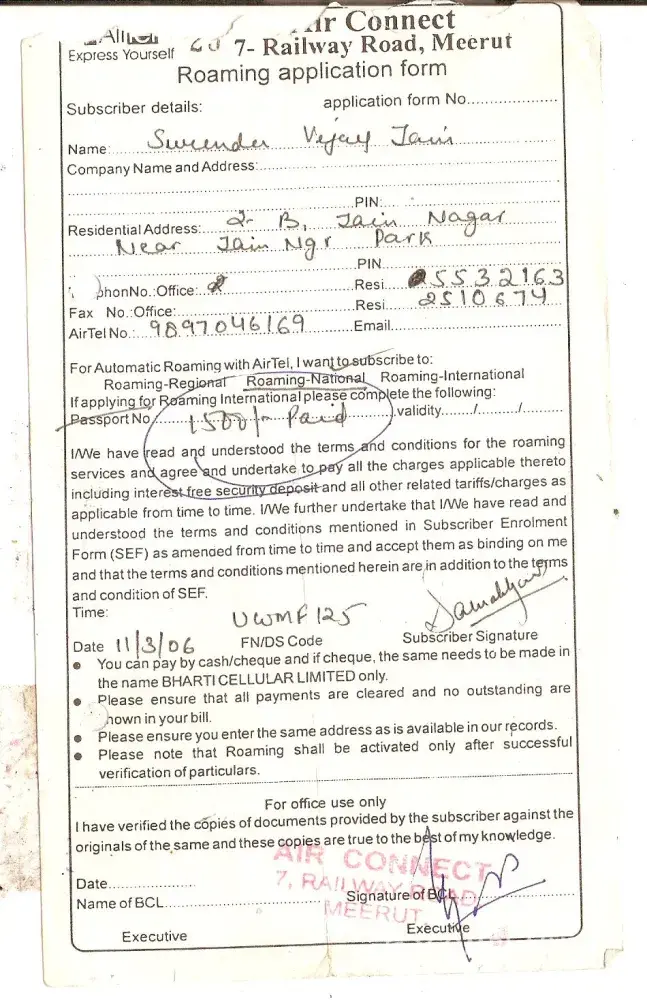 Air Connect
Express Yourself 7- Railway Road, Meerut
Roaming application form
Subscriber details: application form No....................
Name: Surender Vijay Jain
Company Name and Address:
PIN:
Residential Address: 2- B, Jain Nagar
Near Jain Ngr Park
PIN
phonNo.:Office: Resi 5532163
Fax No.:Office: Resi 2510674
AirTel No.: 9897046169 Email
For Automatic Roaming with AirTel, I want to subscribe to:
Roaming-Regional Roaming-National Roaming-International
If applying for Roaming International please complete the following:
Passport No 1500/- Paid validity......./........./.......
I/We have read and understood the terms and conditions for the roaming
services and agree and undertake to pay all the charges applicable thereto
including interest free security deposit and all other related tariffs/charges as
applicable from time to time. I/We further undertake that I/We have read and
understood the terms and conditions mentioned in Subscriber Enrolment
Form (SEF) as amended from time to time and accept them as binding on me
and that the terms and conditions mentioned herein are in addition to the terms
and condition of SEF.
Time: UWMF125
Date 11/3/06 FN/DS Code Subscriber Signature
• You can pay by cash/cheque and if cheque, the same needs to be made in
the name BHARTI CELLULAR LIMITED only.
• Please ensure that all payments are cleared and no outstanding are
hown in your bill.
• Please ensure you enter the same address as is available in our records.
• Please note that Roaming shall be activated only after successful
verification of particulars.
For office use only
I have verified the copies of documents provided by the subscriber against the
originals of the same and these copies are true to the best of my knowledge.
AIR CONNECT
7, RAILWAY ROAD
MEERUT
Date
Name of BCL Signature of BCL
Executive Executive